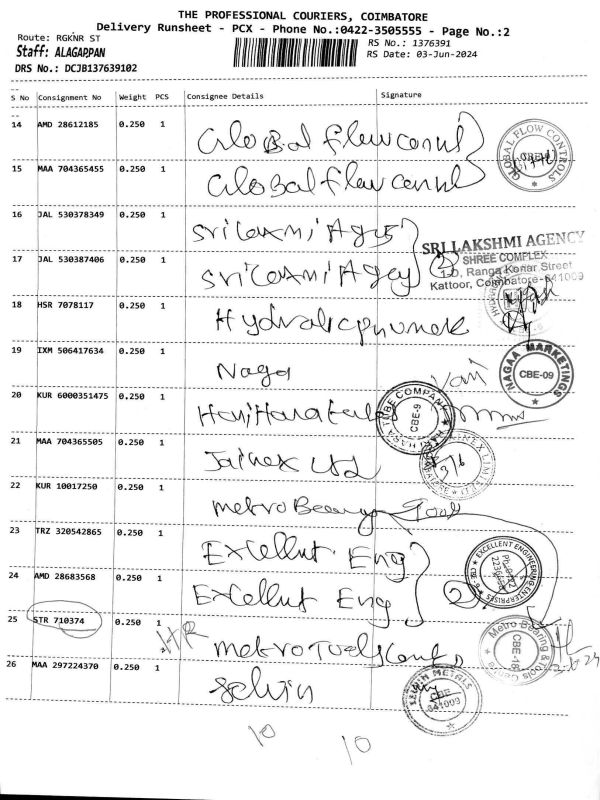 THE PROFESSIONAL COURIERS, COIMBATORE
Delivery Runsheet - PCX - Phone No.:0422-3505555 - Page No.:2
Route: RGKNR ST
RS No.: 1376391
Staff: ALAGAPPAN
RS Date: 03-Jun-2024
DRS No.: DCJB137639102
S No Consignment No Weight PCS Consignee Details Signature
14 AMD 28612185 0.250 1 Global flow conul
GLOBAL FLOW CONTROLS
15 MAA 704365455 0.250 1 Global flow conul
16 JAL 530378349 0.250 1 Sri laxmi Agey
SRI LAKSHMI AGENCY
SHREE COMPLEX
1-D, Ranga Konar Street
Kattoor, Coimbatore-641009
17 JAL 530387406 0.250 1 Sri laxmi Agey 2
18 HSR 7078117 0.250 1
19 IXM 506417634 0.250 1 Naga
NAGAA MARKETINGS
CBE-09
20 KUR 6000351475 0.250 1
TUBE COMPANY
CBE-9
21 MAA 704365505 0.250 1 Jainex Ltd
3/6
22 KUR 10017250 0.250 1 metro Bearing Tool
23 TRZ 320542865 0.250 1 Excellut. Eng
EXCELLENT ENGINEERING ENTERPRISES
CBE-9
24 AMD 28683568 0.250 1 Excellut Eng 2
25 STR 710374 0.250 1 HR metro Tools
Metro Bearing & Tools Centre
CBE-18
26 MAA 297224370 0.250 1 Selvin
SELVIN METALS
CBE
641009
10
10